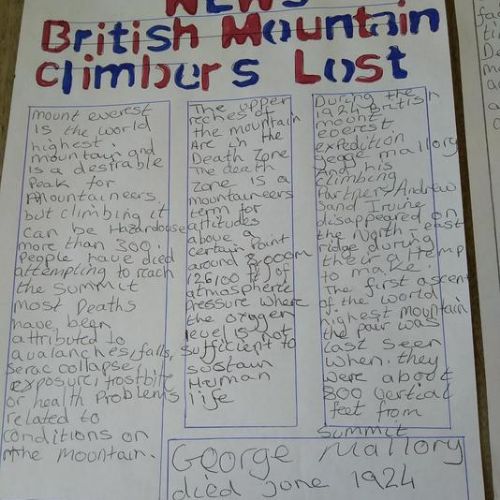 NEWS
British Mountain
climbers Lost
mount everest
is the world
highest
mountain and
is a desirable
Peak for
Mountaineers
but climbing it
can be Hazardouse
more than 300
People have died
attempting to reach
the Summit
most Deaths
have been
attributed to
avalanches, falls,
serac collapse,
exposure, frostbite
or health Problems
related to
conditions on
the Mountain.
The upper
reches of
the mountain
Are in the
Death Zone
The death
Zone is a
mountaineers
term for
altitudes
above a
certain Point
around 8,000m
(26,100 ft) of
atmospheric
Pressure where
the oxygen
level is not
sufficient to
sustain
Human
life
During the
1924 British
mount
everest
expedition
mallory
And his
climbing
Partners Andrew
Sand Irvine
disappeared on
the North-east
ridge during
their attemp
to make
The first ascent
of the world
highest mountain
the pair was
Last Seen
when they
were about
800 vertical
feet from
summit
George Mallory
died June 1924